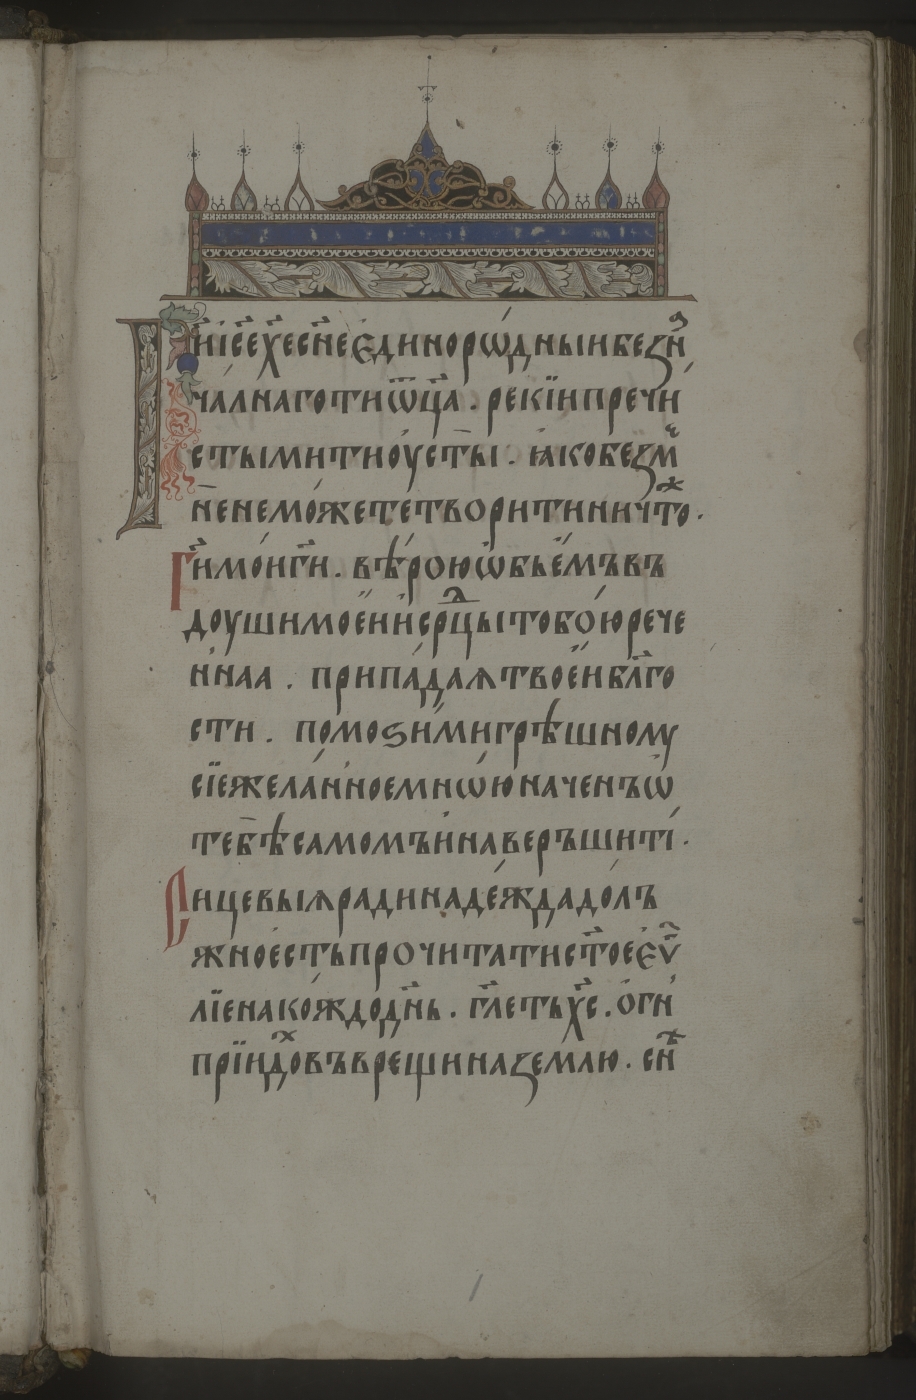 Ги҃ іс҃е хе҃ сн҃е єдинорѡ́дныи безн
чалнаго ти ѿц҃а . рекі́и пречи
стыми ти оу́сты . ꙗко безме
не не мо́жете творити ничто́ж .
Ги҃ мо́и ги҃ . вѣ́рою ѡбье́мъ въ
доуши мое́и и́ ср҃дцы тобо́ю рече
ннаа . припа́даѧ твое́и бл҃го
сти . помоѕи́ ми грѣшному
сїе жела́нное мно́ю наченъ ѡ
тебѣ само́мъ и́ наверъши́ти .
Сицевыѧ ради наде́жда до́лъ
жно е́сть прочитати ст҃ое єѵ҃
лїе на ко́ждо дн҃ь . гл҃еть хс҃ . о́гни
прїи́дохъ въврещи на землю . сн҃ѣ
1